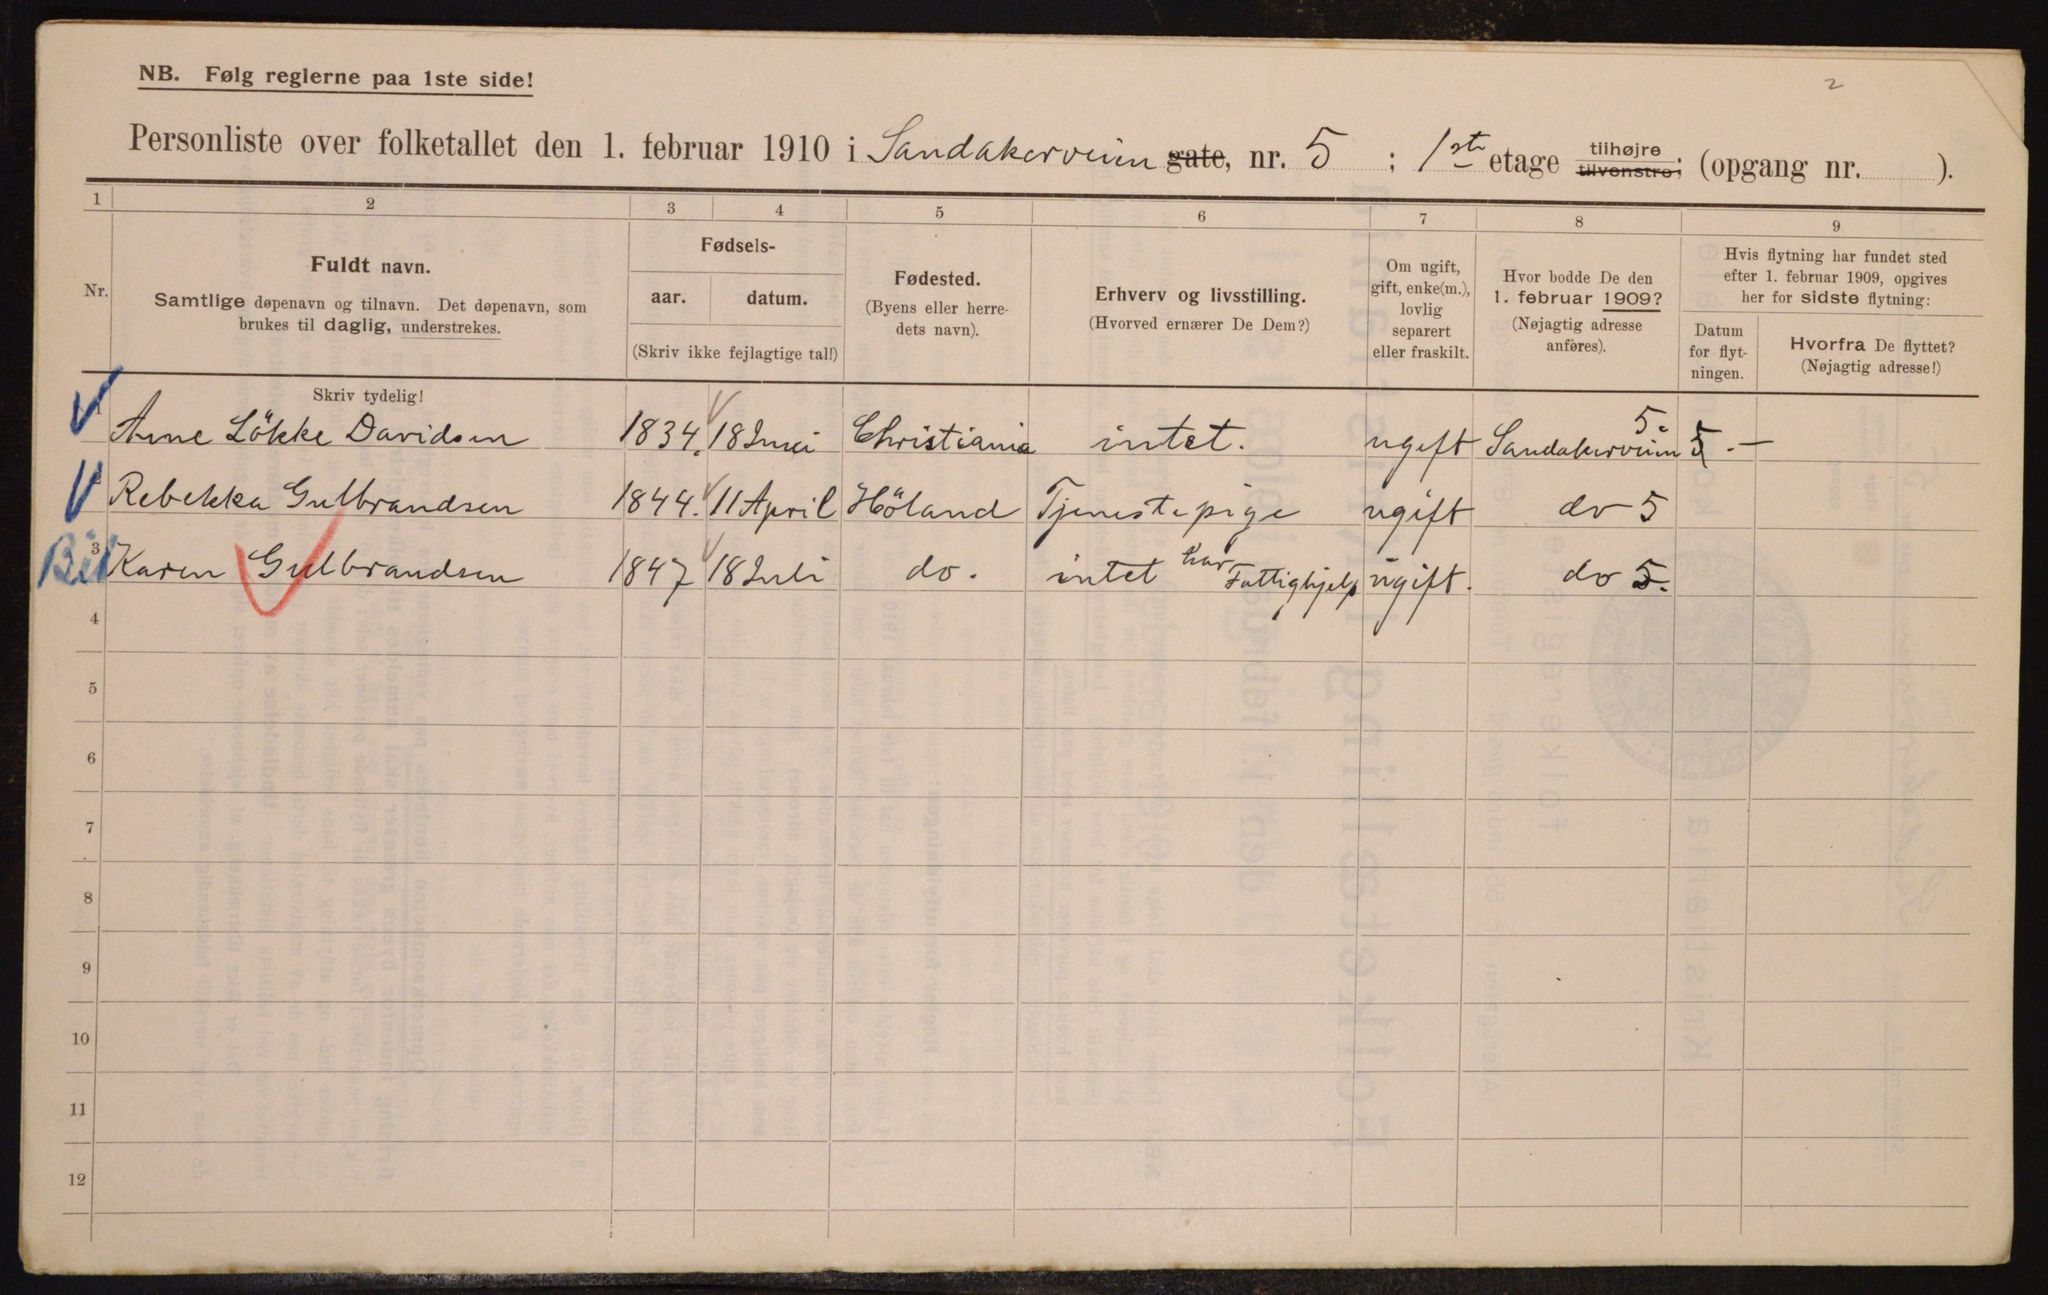 2
NB. Følg reglerne paa 1ste side!
Personliste over folketallet den 1. februar 1910 i Sandakerveien gate, nr. 5 ; 1ste etage tilhøjre tilvenstre; (opgang nr. ).
1 2 3 4 5 6 7 8 9
Nr.
Fuldt navn.
Samtlige døpenavn og tilnavn. Det døpenavn, som
brukes til daglig, understrekes.
Fødsels-
aar. datum.
(Skriv ikke fejlagtige tal!)
Fødested.
(Byens eller herre-
dets navn).
Erhverv og livsstilling.
(Hvorved ernærer De Dem?)
Om ugift,
gift, enke(m.),
lovlig
separert
eller fraskilt.
Hvor bodde De den
1. februar 1909?
(Nøjagtig adresse
anføres).
Hvis flytning har fundet sted
efter 1. februar 1909, opgives
her for sidste flytning:
Datum
for flyt-
ningen.
Hvorfra De flyttet?
(Nøjagtig adresse!)
Skriv tydelig!
Anne Lökke Davidsen 1834. 18 Christiania intet. ugift Sandakerveien 5. 5 -
Rebekka Gulbrandsen 1844. 11 April Höland Tjenestepige ugift do 5
3 Karen Gulbrandsen 1847 18 Juli do. intet har Fattighjelp ugift. do 5.
4
5
6
7
8
9
10
11
12